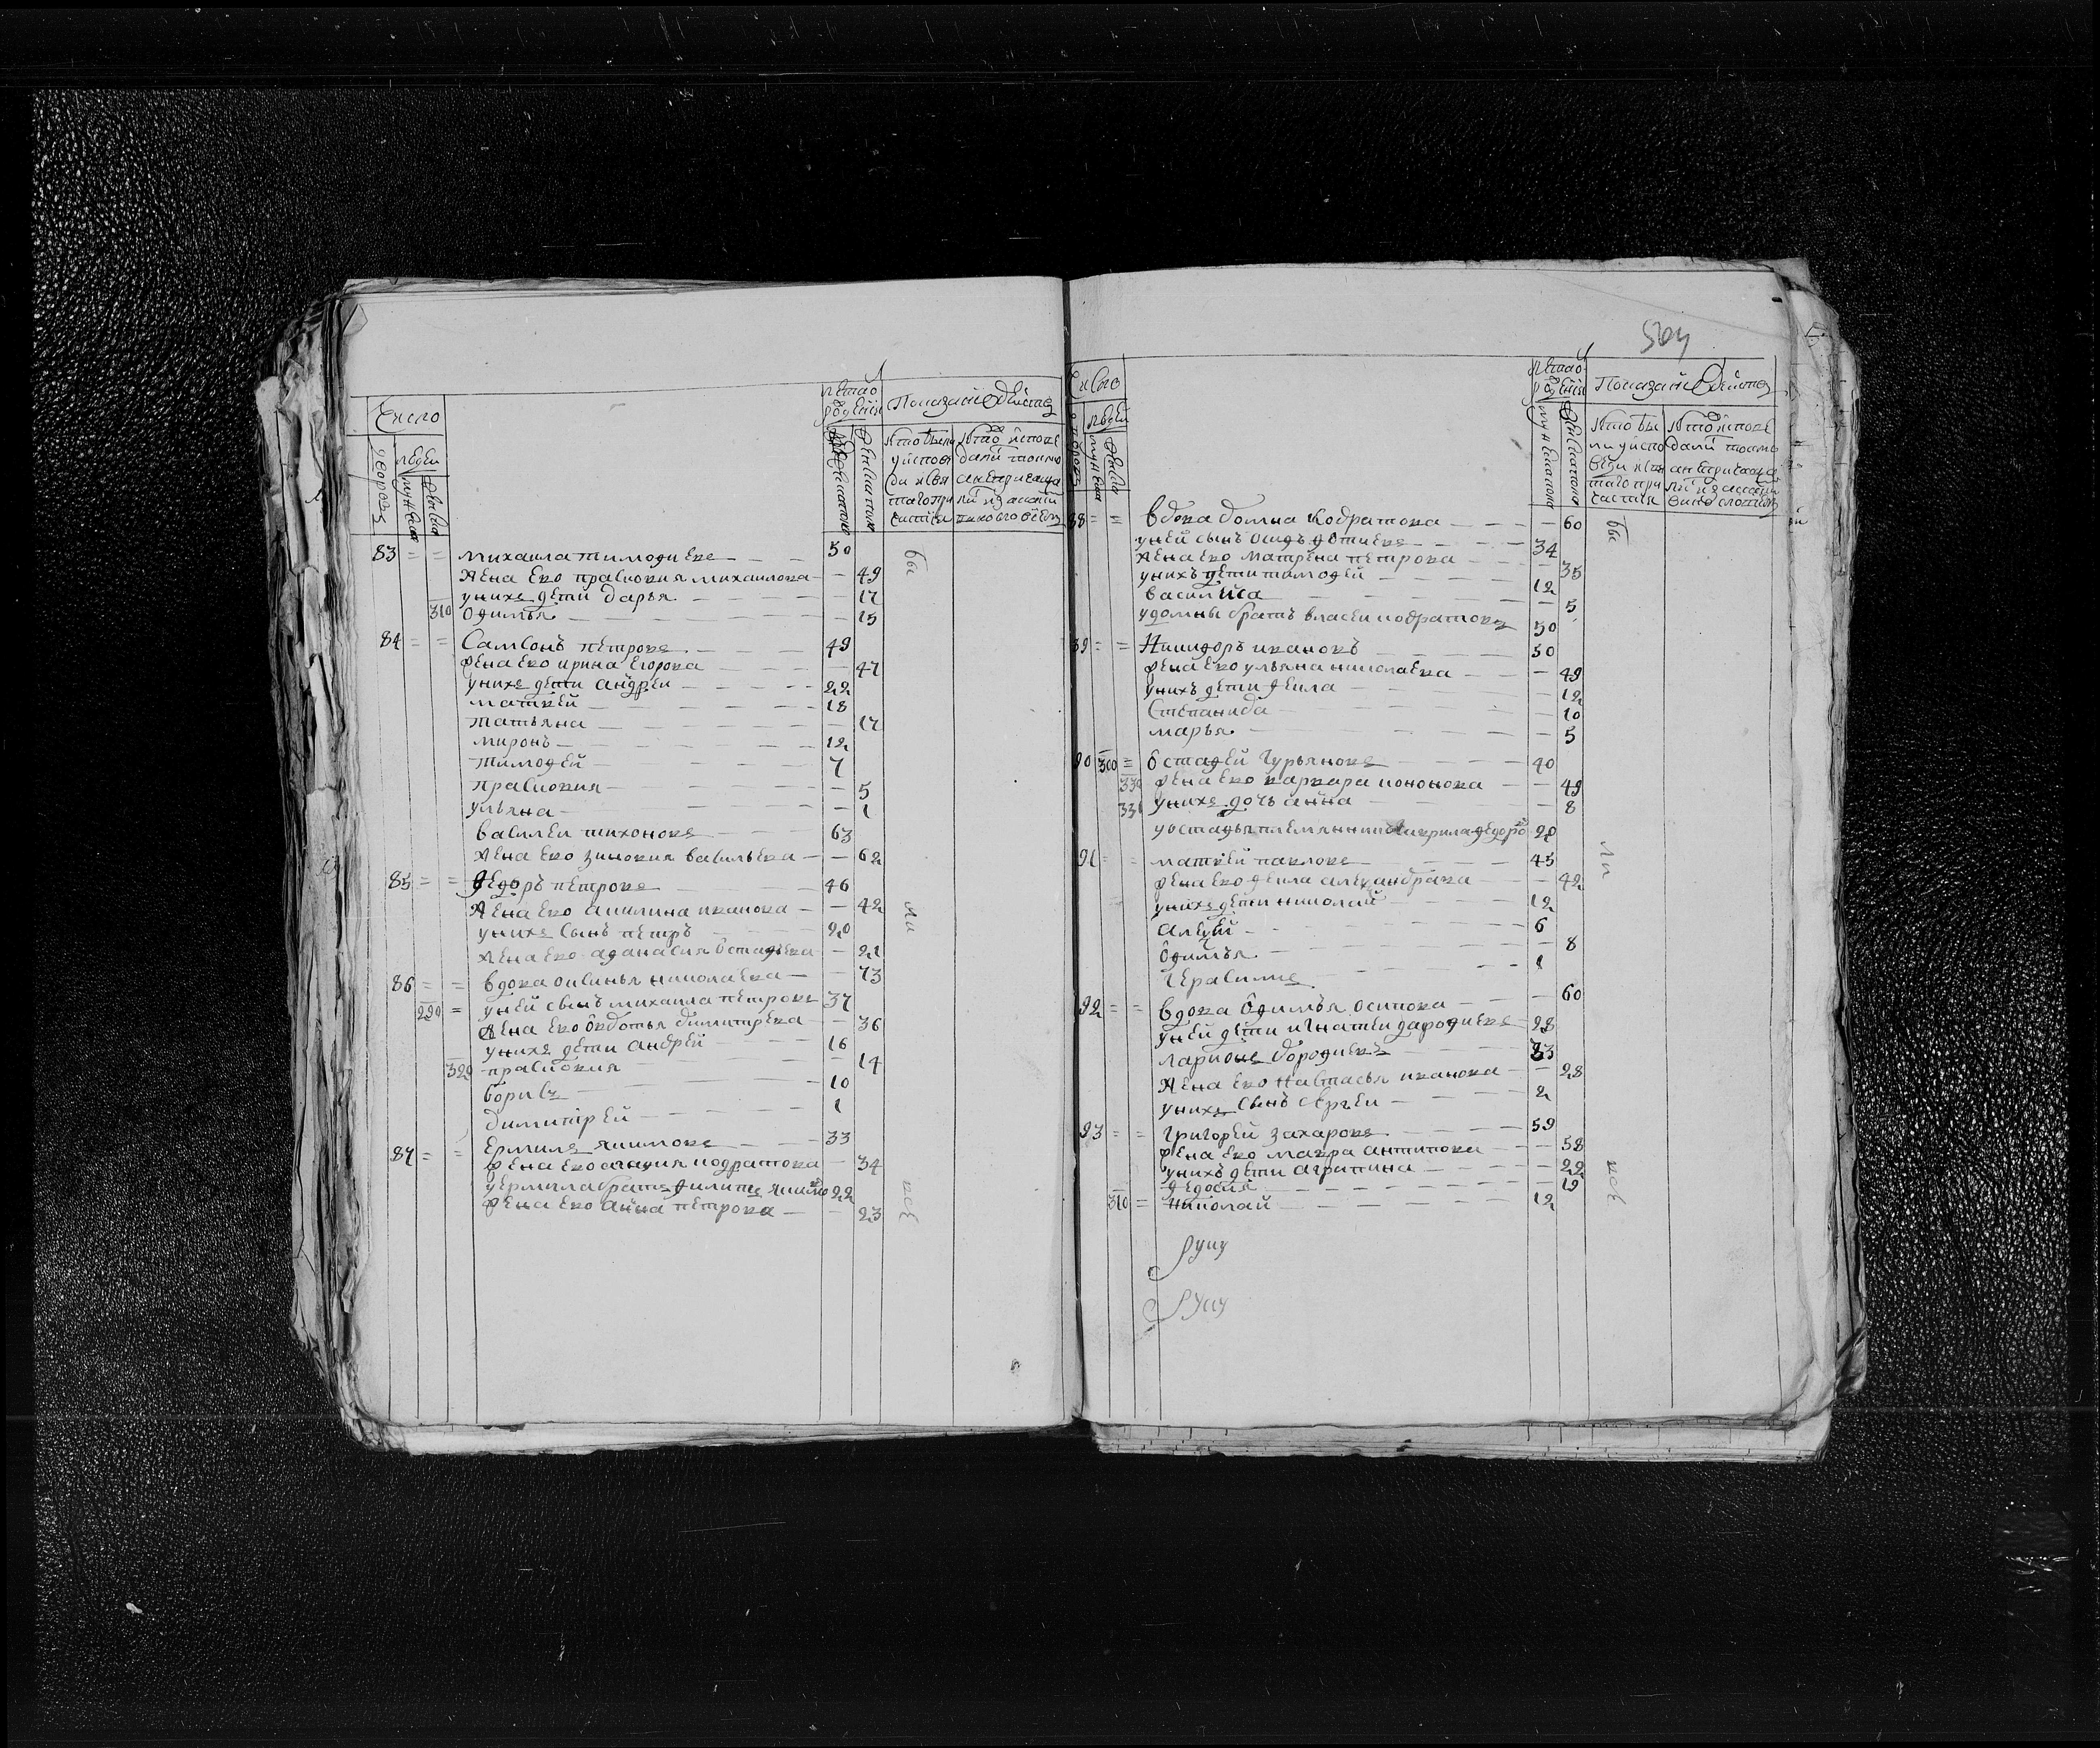 Число
людей
дворовъ
мужеска
женска
лета от рождения
мужескаго
женскаго
Показание действъ
Кто были
у испове
ди и свя
таго при
частия
Кто испове
дали токмо
а не прича
83 = = михаила тимофиевъ — 50
жена ево прасковия михаилова — 49
у нихъ дети дарья — 17
310 офимья — 15
84 = = Самсонъ петровъ — 49
жена ево ирина егорова — 47
у нихъ дети андреи — 22
матвей — 18
татьяна — 17
миронъ — 12
тимофей — 7
прасковия — 5
ульяна — 1
василеи тихоновъ — 63
жена ево зиновия васильева — 62
85 = = федоръ петровъ — 46
жена ево акилина иванова — 42
у нихъ сынъ петръ — 20
жена ево афанасия остафьева — 21
86 = = вдова оксинья николаева — 73
290 = у ней сынъ михаила петровъ 37
жена ево овдотья димитрева — 36
у нихъ дети андрей — 16
320 прасковия — 14
борисъ — 10
димитрей — 1
87 = = Ермилъ якимовъ — 33
жена ево кодратова — 34
у ермила братъ филипъ якимовъ 22
жена ево анна петрова — 23
бы
ли
всѣ
564
Число
людей
дворовъ
мужеска
женска
лета от рождения
мужескаго
женскаго
Показание действъ
Кто бы
ли у испо
веди и свя
таго при
частия
Кто испове
дали токмо
а не прича
88 = = вдова домна кодратова — 60
у ней сынъ осипъ фотиевъ — 34
жена ево матрена петрова — 35
у нихъ дети тимофей — 12
василиса — 5
у домны братъ власеи кодратовъ 50
89 = = Никифоръ ивановъ — 50
жена ево ульяна николаева — 49
у нихъ дети фекла — 12
Степанида — 10
марья — 5
90 300 = Остафей гурьяновъ — 40
330 жена ево варвара кононова — 49
331 у нихъ дочь анна — 8
у остафья племянникъ кирила федоро 20
91 = = матвей павловъ — 45
жена ево фекла александрова — 42
у нихъ дети николай — 12
алексей — 6
офимья — 8
герасимъ — 1
92 = = вдова офимья осипова — 60
у ней дети игнатеи дарофиевъ — 28
ларионъ дорофиевъ — 23
жена ево настасья иванова — 28
у нихъ сынъ сергеи — 2
93 = = григорей захаровъ — 59
жена ево мавра антипова — 58
у нихъ дети аграпина — 22
федосия — 19
310 = николай — 12
бы
ли
всѣ
руку
руку